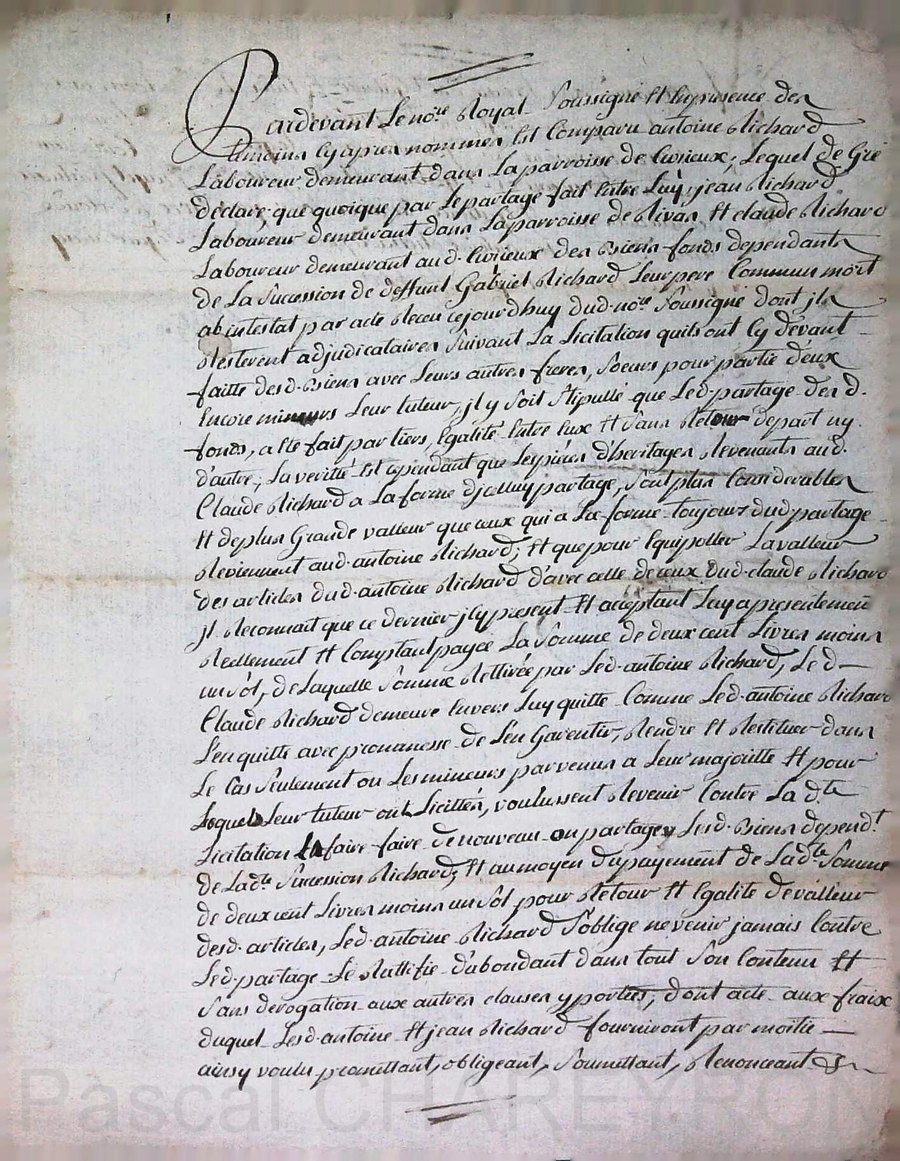 Pardevant Le no.re Royal Soussigné Et En presence des
temoins Cy apres nommés Est Comparu antoine Richard
Laboureur demeurant dans La parroisse de Civrieux, Lequel de Gré
déclare que quoique par Le partage fait Entre Luy, jean Richard
Laboureur demeurant dans La parroisse de Rivas Et claude Richard
Laboureur demeurant aud. Civrieux des Biens fonds dependants
de La Succession de deffunt Gabriel Richard Leur pere Commun mort
abintestat par acte Recu cejourdhuy dud. no.re Soussigné dont jls
Resterent adjudicataires Suivant La Licitation quils ont Cy devant
faitte desd. Biens avec Leurs autres freres, Soeurs pour partie d'eux
Encore mineurs Leur tuteur, jl y Soit Stipullé que Led. partage desd.
fonds, a été fait par tiers, Egalité Entre Eux Et Sans Retour depart ny
d'autre, La verité Est cependant que Les pièces d'heritages Revenants aud.
Claude Richard a La forme djcelluy partage, Sont plus Considerables
Et de plus Grande valleur que ceux qui a La forme toujours dud. partage
Reviennent aud. antoine Richard; Et que pour Equipoller La valleur
des articles dud. antoine Richard d'avec celle de ceux dud. claude Richard
jl Reconnait que ce dernier jcy present Et acceptant Luy a presentement
Reellement Et Comptant payée La Somme de deux cent Livres moins
un Sol, de Laquelle Somme Rettirée par Led. antoine Richard, Led.
Claude Richard demeure Envers Luy quitte Comme Led. antoine Richard
L'en quitte avec promanesse de L'en Garentir, Rendre Et Restituer dans
Le Cas Seulement ou Les mineurs parvenus a Leur majoritté Et pour
Lequels Leur tuteur ont Licittés, voulussent Revenir Contre La d.te
Licitation La faire faire de nouveau ou partager Lesd. Biens depend.t
de Lad.te Succession Richard; Et au moyen du payement de Lad.te Somme
de deux cent Livres moins un Sol pour Retour Et Egalité de valleur
desd. articles, Led. antoine Richard S'oblige ne venir jamais Contre
Led. partage Le Rattifie d'abondant dans tout Son Contenu Et
Sans derogation aux autres clauses y portées, dont acte aux fraix
duquel Lesd. antoine Et jean Richard fourniront par moitié
ainsy voulu promettant, obligeant, Soumettant, Renonceant &
Pascal CHAREYRON